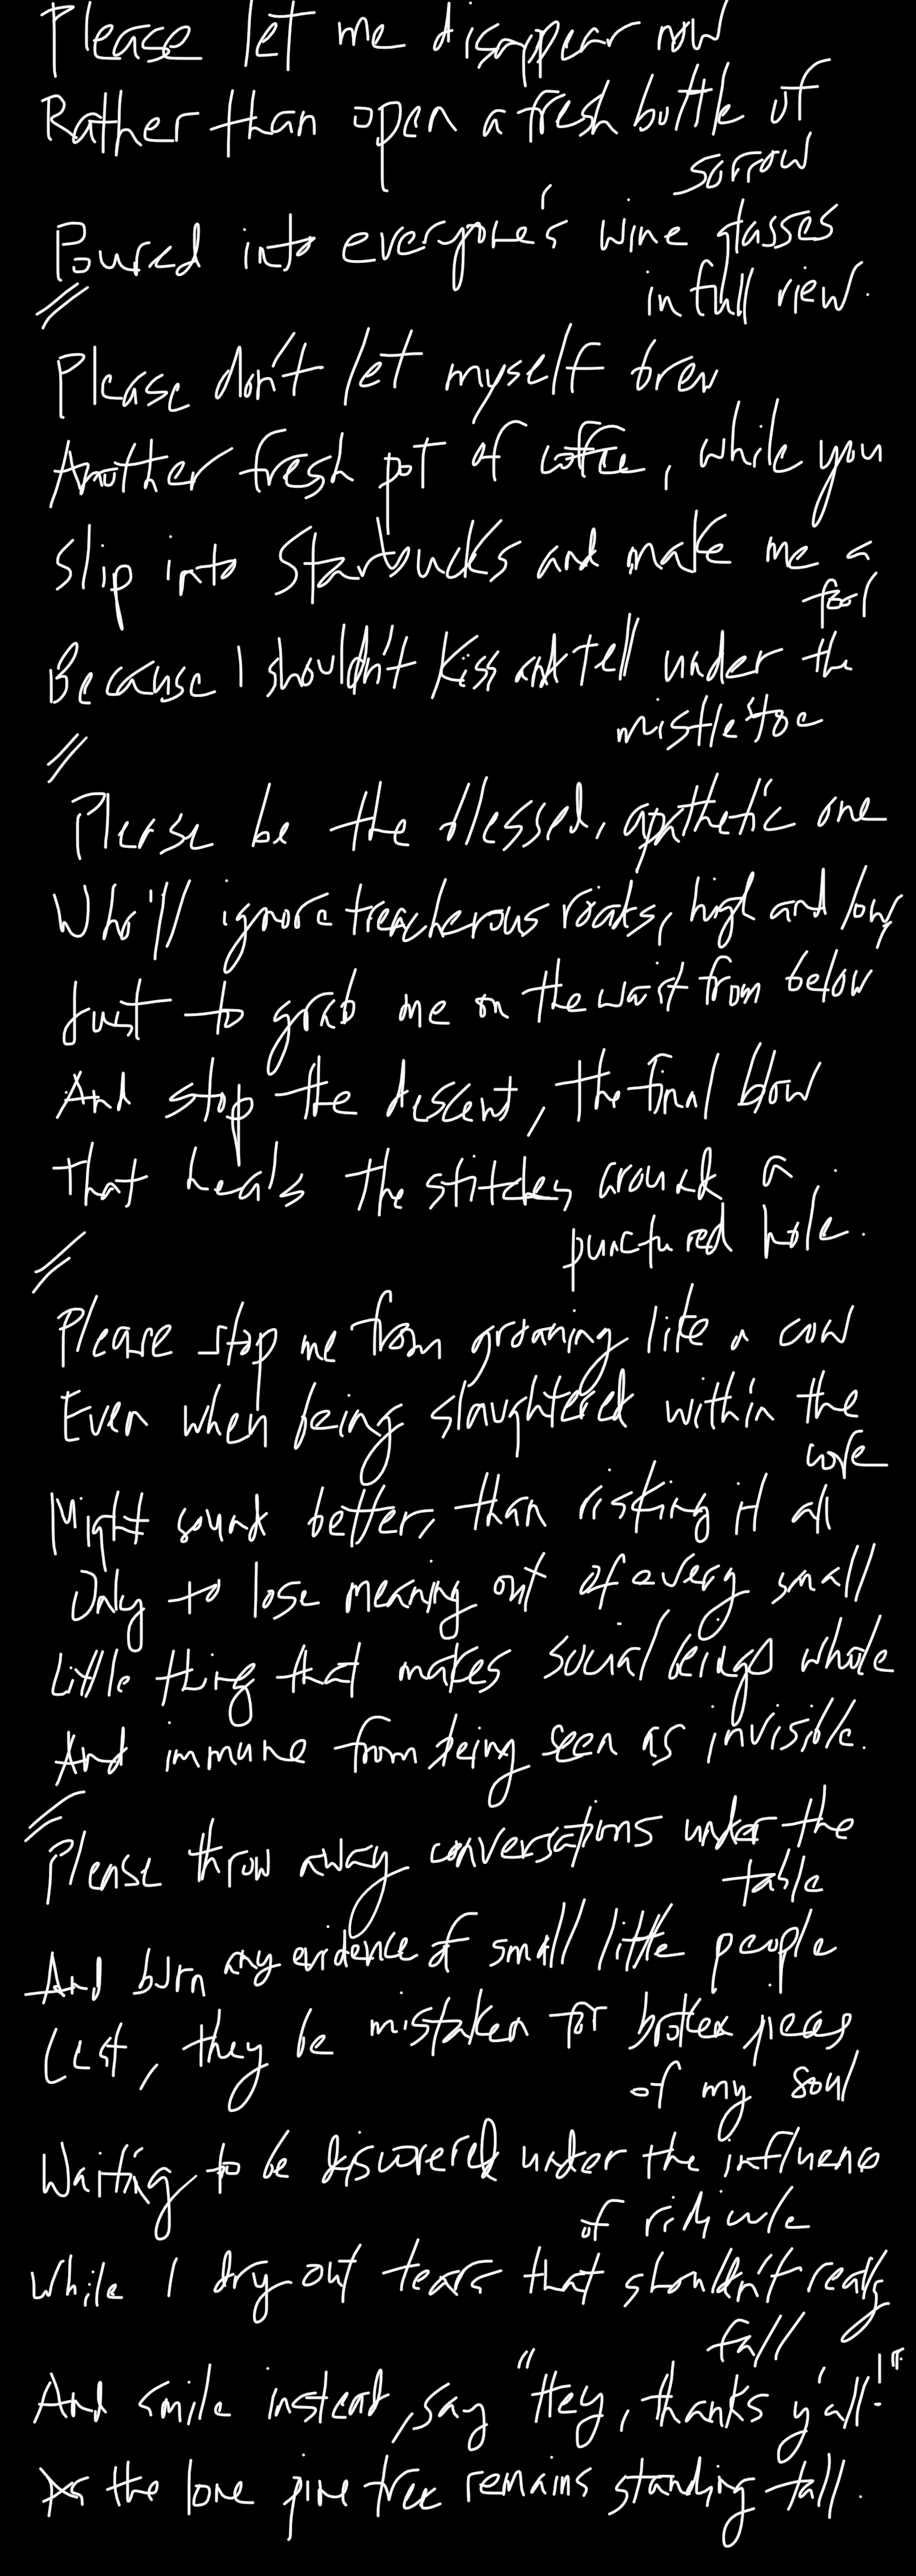 Please let me disappear now
Rather than open a fresh bottle of
sorrow
Poured into everyone's wine glasses
in full view.
//
Please don't let myself brew
Another fresh pot of coffee, while you
slip into Starbucks and make me a
fool
Because I shouldn't kiss and tell under the
mistletoe
//
Please be the blessed, apathetic one
Who'll ignore treacherous roads, high and low,
Just to grab me on the waist from below
And stop the descent, the final blow
That heals the stitches around a
punctured hole.
//
Please stop me from groaning like a cow
Even when being slaughtered within the
core
Might sound better, than risking it all
Only to lose meaning out of every small
Little thing that makes social beings whole
And immune from being seen as invisible.
//
Please throw away conversations under the
table
And burn any evidence of small little people
Lest, they be mistaken for broken pieces
of my soul
Waiting to be discovered under the influence
of ridicule
While I dry out tears that shouldn't really
fall
And smile instead, say "Hey, thanks y'all!"
As the lone pine tree remains standing tall.